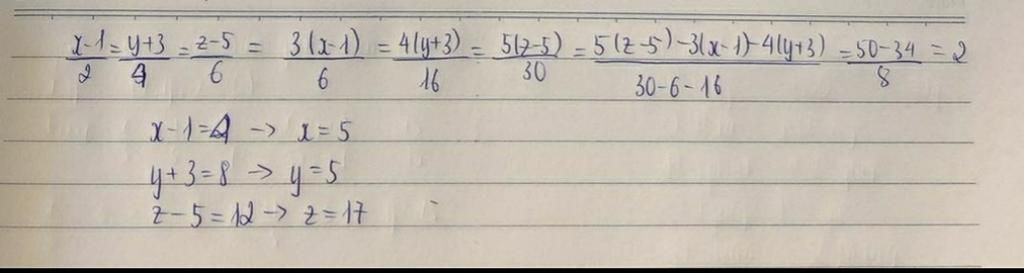 x-1/2 = y+3/4 = z-5/6 = 3(x-1)/6 = 4(y+3)/16 = 5(z-5)/30 = 5(z-5)-3(x-1)-4(y+3)/30-6-16 = 50-34/8 = 2
x-1=4 → x=5
y+3=8 → y=5
z-5=12 → z=17